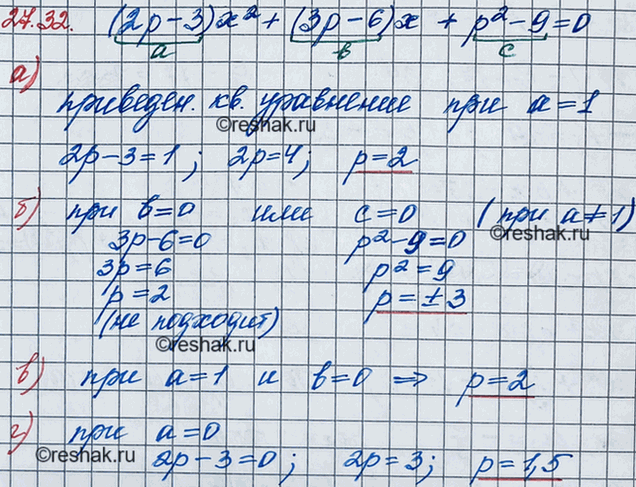 27.32. (2p-3)x² + (3p-6)x + p²-9=0
a в c
а)
приведен. кв. уравнение при a=1
©reshak.ru
2p-3=1; 2p=4; p=2
б) при в=0 или c=0 (при a≠1)
©reshak.ru
3p-6=0 p²-9=0
3p=6 p²=9
p=2 p=±3
(не подходит)
©reshak.ru
в) при a=1 и в=0 ⇒ p=2
г) при a=0
©reshak.ru
2p-3=0; 2p=3; p=1,5